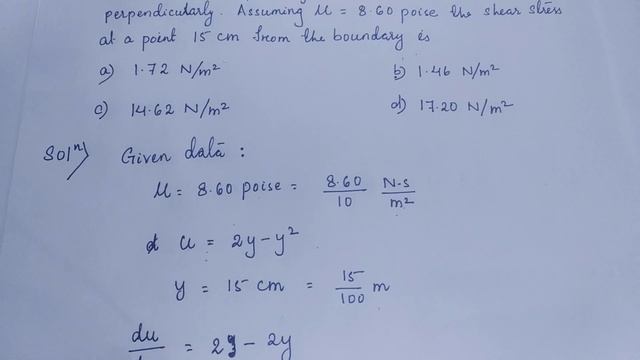 perpendicularly. Assuming μ = 8.60 poise the shear stress
at a point 15 cm from the boundary is
a) 1.72 N/m² b) 1.46 N/m²
c) 14.62 N/m² d) 17.20 N/m²
Solⁿ) Given data :
μ = 8.60 poise = 8.60/10 N-s/m²
u = 2y - y²
y = 15 cm = 15/100 m
du = 2 - 2y